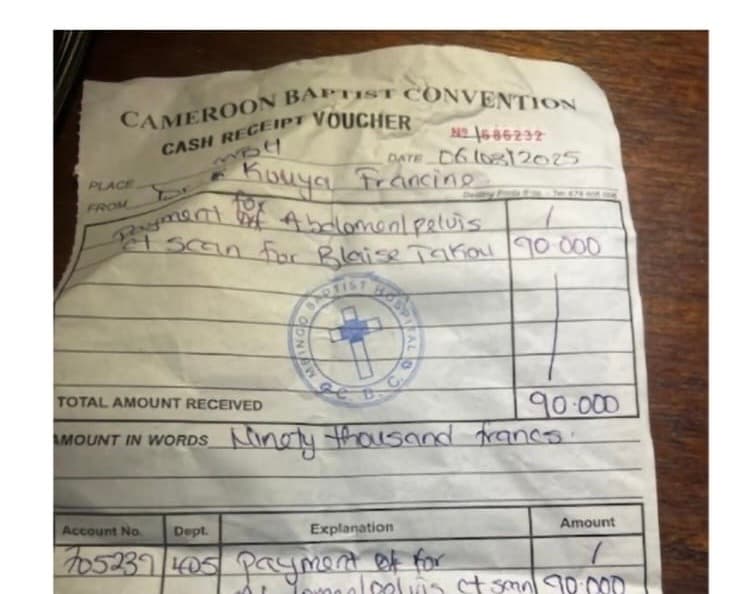 CAMEROON BAPTIST CONVENTION
CASH RECEIPT VOUCHER
Nº 1686232
PLACE MBH
DATE 06/03/2025
FROM Dr. Kouya Francine
Payment for Abdomen/pelvis
ct scan for Blaise Takou 90.000
MBINGO BAPTIST HOSPITAL
C. B. C.
TOTAL AMOUNT RECEIVED 90.000
AMOUNT IN WORDS Ninety thousand francs.
Account No. Dept. Explanation Amount
705239 405 payment for
ct scan 90.000